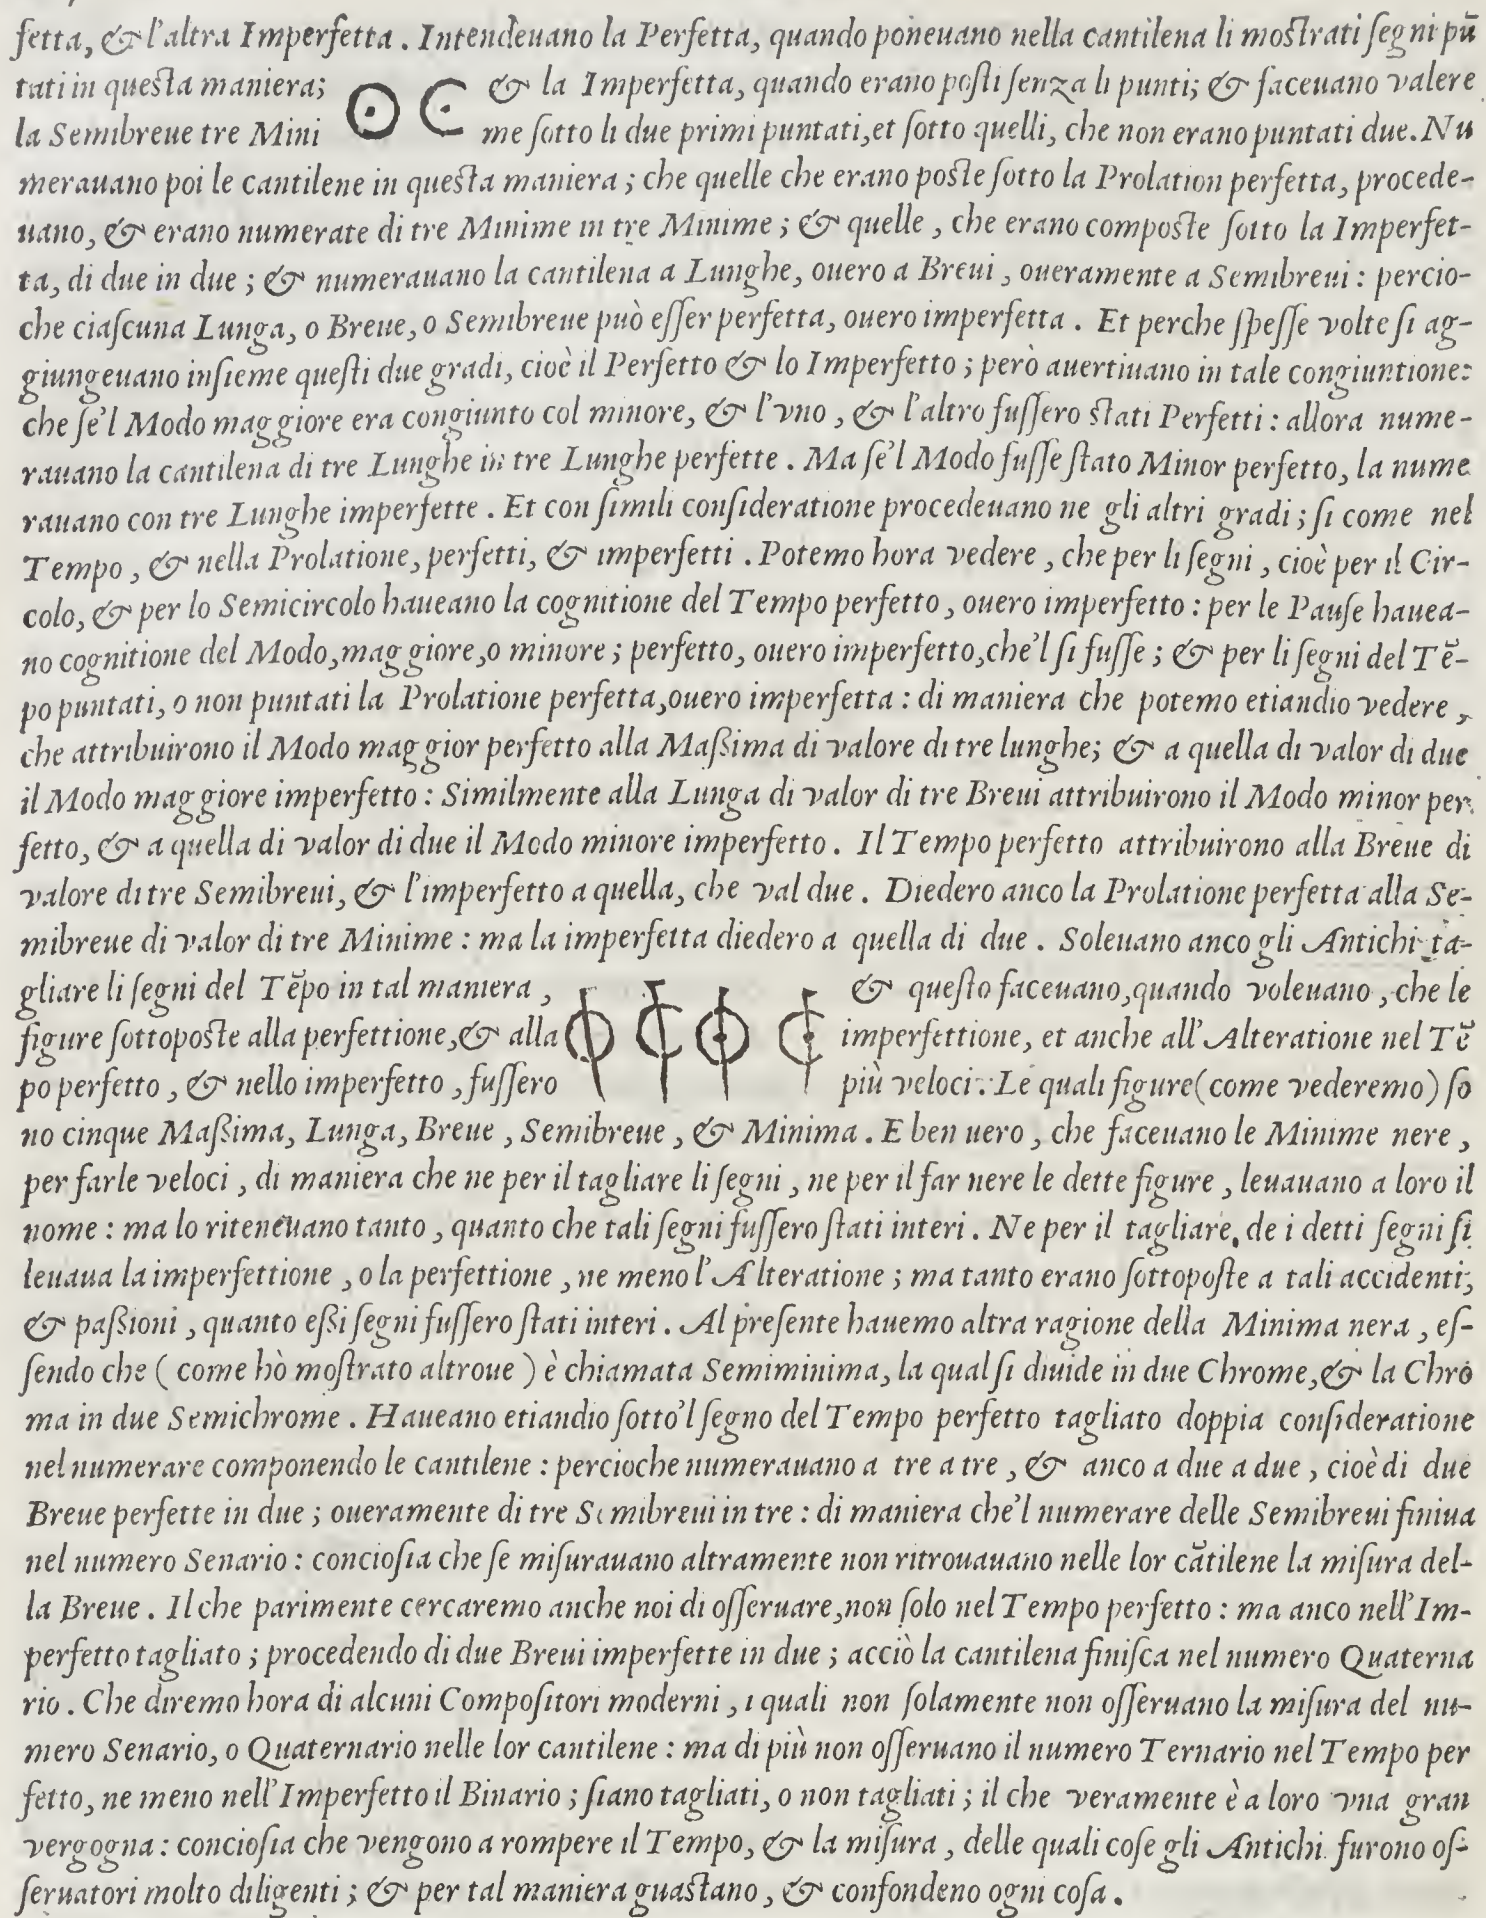 fetta, & l'altra Imperfetta. Intendeuano la Perfetta, quando poneuano nella cantilena li moſtrati ſegni pū
tati in queſta maniera; & la Imperfetta, quando erano poſti ſenza li punti; & faceuano valere
la Semibreue tre Mini me ſotto li due primi puntati, et ſotto quelli, che non erano puntati due. Nu
merauano poi le cantilene in queſta maniera; che quelle che erano poſte ſotto la Prolation perfetta, procede-
uano, & erano numerate di tre Minime in tre Minime; & quelle, che erano compoſte ſotto la Imperfet-
ta, di due in due; & numerauano la cantilena a Lunghe, ouero a Breui, oueramente a Semibreui: percio-
che ciaſcuna Lunga, o Breue, o Semibreue può eſſer perfetta, ouero imperfetta. Et perche ſpeſſe volte ſi ag-
giungeuano inſieme queſti due gradi, cioè il Perfetto & lo Imperfetto; però auertiuano in tale congiuntione:
che ſe'l Modo maggiore era congiunto col minore, & l'vno, & l'altro fuſſero ſtati Perfetti: allora nume-
rauano la cantilena di tre Lunghe in tre Lunghe perfette. Ma ſe'l Modo fuſſe ſtato Minor perfetto, la nume
rauano con tre Lunghe imperfette. Et con ſimili conſideratione procedeuano ne gli altri gradi; ſi come nel
Tempo, & nella Prolatione, perfetti, & imperfetti. Potemo hora vedere, che per li ſegni, cioè per il Cir-
colo, & per lo Semicircolo haueano la cognitione del Tempo perfetto, ouero imperfetto: per le Pauſe hauea-
no cognitione del Modo, maggiore, o minore; perfetto, ouero imperfetto, che'l ſi fuſſe; & per li ſegni del Tē-
po puntati, o non puntati la Prolatione perfetta, ouero imperfetta: di maniera che potemo etiandio vedere,
che attribuirono il Modo maggior perfetto alla Maßima di valore di tre lunghe; & a quella di valor di due
il Modo maggiore imperfetto: Similmente alla Lunga di valor di tre Breui attribuirono il Modo minor per-
fetto, & a quella di valor di due il Modo minore imperfetto. Il Tempo perfetto attribuirono alla Breue di
valore di tre Semibreui, & l'imperfetto a quella, che val due. Diedero anco la Prolatione perfetta alla Se-
mibreue di valor di tre Minime: ma la imperfetta diedero a quella di due. Soleuano anco gli Antichi ta-
gliare li ſegni del Tēpo in tal maniera, & queſto faceuano, quando voleuano, che le
figure ſottopoſte alla perfettione, & alla imperfettione, et anche all'Alteratione nel Tē
po perfetto, & nello imperfetto, fuſſero più veloci. Le quali figure (come vederemo) ſo
no cinque Maßima, Lunga, Breue, Semibreue, & Minima. E ben uero, che faceuano le Minime nere,
per farle veloci, di maniera che ne per il tagliare li ſegni, ne per il far nere le dette figure, leuauano a loro il
nome: ma lo riteneuano tanto, quanto che tali ſegni fuſſero ſtati interi. Ne per il tagliare de i detti ſegni ſi
leuaua la imperfettione, o la perfettione, ne meno l'Alteratione; ma tanto erano ſottopoſte a tali accidenti,
& paßioni, quanto eßi ſegni fuſſero ſtati interi. Al preſente hauemo altra ragione della Minima nera, eſ-
ſendo che (come hò moſtrato altroue) è chiamata Semiminima, la qual ſi diuide in due Chrome, & la Chro
ma in due Semichrome. Haueano etiandio ſotto'l ſegno del Tempo perfetto tagliato doppia conſideratione
nel numerare componendo le cantilene: percioche numerauano a tre a tre, & anco a due a due, cioè di due
Breue perfette in due; oueramente di tre Semibreui in tre: di maniera che'l numerare delle Semibreui finiua
nel numero Senario: concioſia che ſe miſurauano altramente non ritrouauano nelle lor cātilene la miſura del-
la Breue. Il che parimente cercaremo anche noi di oſſeruare, non ſolo nel Tempo perfetto: ma anco nell'Im-
perfetto tagliato; procedendo di due Breui imperfette in due; acciò la cantilena finiſca nel numero Quaterna
rio. Che diremo hora di alcuni Compoſitori moderni, i quali non ſolamente non oſſeruano la miſura del nu-
mero Senario, o Quaternario nelle lor cantilene: ma di più non oſſeruano il numero Ternario nel Tempo per
fetto, ne meno nell'Imperfetto il Binario; ſiano tagliati, o non tagliati; il che veramente è a loro vna gran
vergogna: concioſia che vengono a rompere il Tempo, & la miſura, delle quali coſe gli Antichi furono oſ-
ſeruatori molto diligenti; & per tal maniera guaſtano, & confondeno ogni coſa.